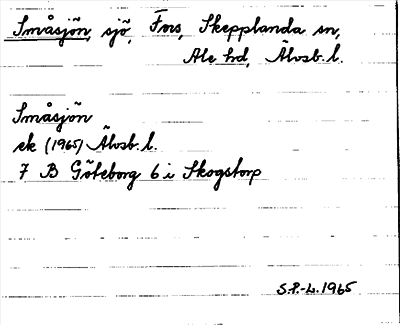 Småsjön, sjö, Fors, Skepplanda sn,
Ale hd, Älvsb. l.
Småsjön
ek (1965) Älvsb. l.
7 B Göteborg 6 i Skogstorp
S.P.-L. 1965